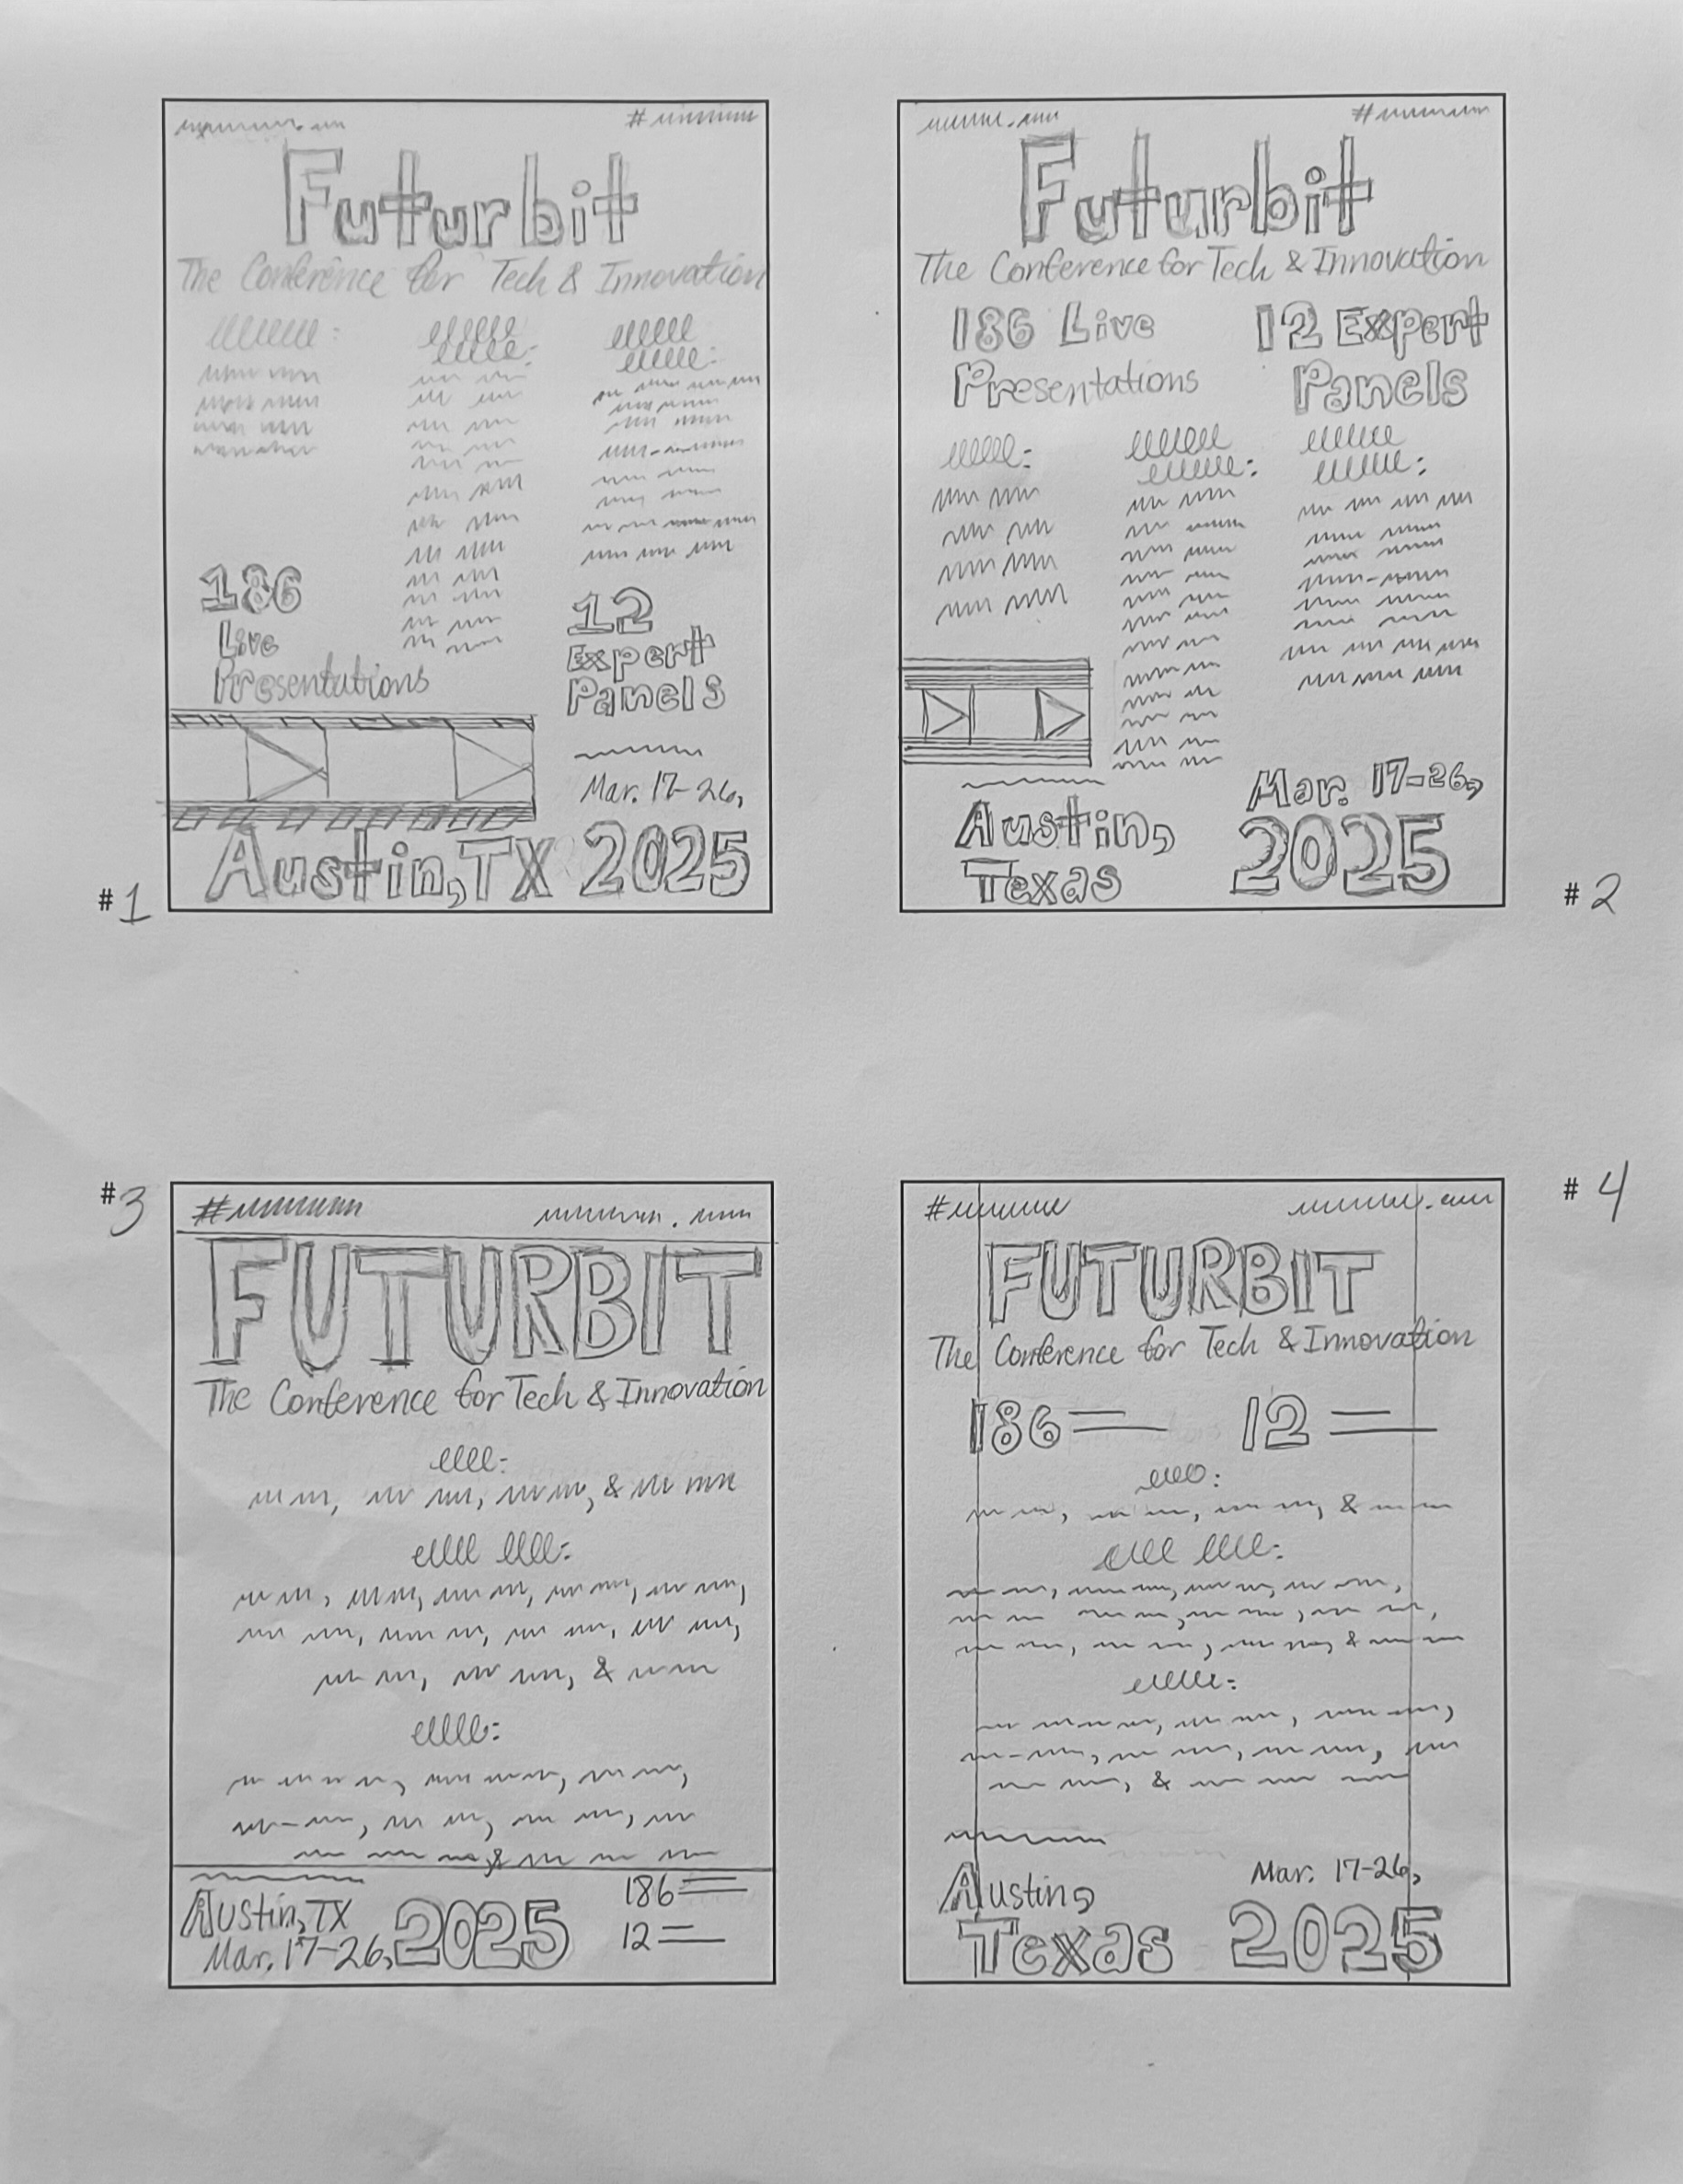 #
Futurbit
The Conference for Tech & Innovation
186
Live
Presentations
12
Expert
Panels
Mar. 17-26,
Austin, TX 2025
#1
#
Futurbit
The Conference for Tech & Innovation
186 Live
Presentations
12 Expert
Panels
Austin,
Texas
Mar. 17-26,
2025
#2
#3
#
FUTURBIT
The Conference for Tech & Innovation
&
&
&
Austin, TX
Mar. 17-26, 2025
186
12
#4
#
FUTURBIT
The Conference for Tech & Innovation
186
12
&
&
&
Austin,
Texas
Mar. 17-26,
2025